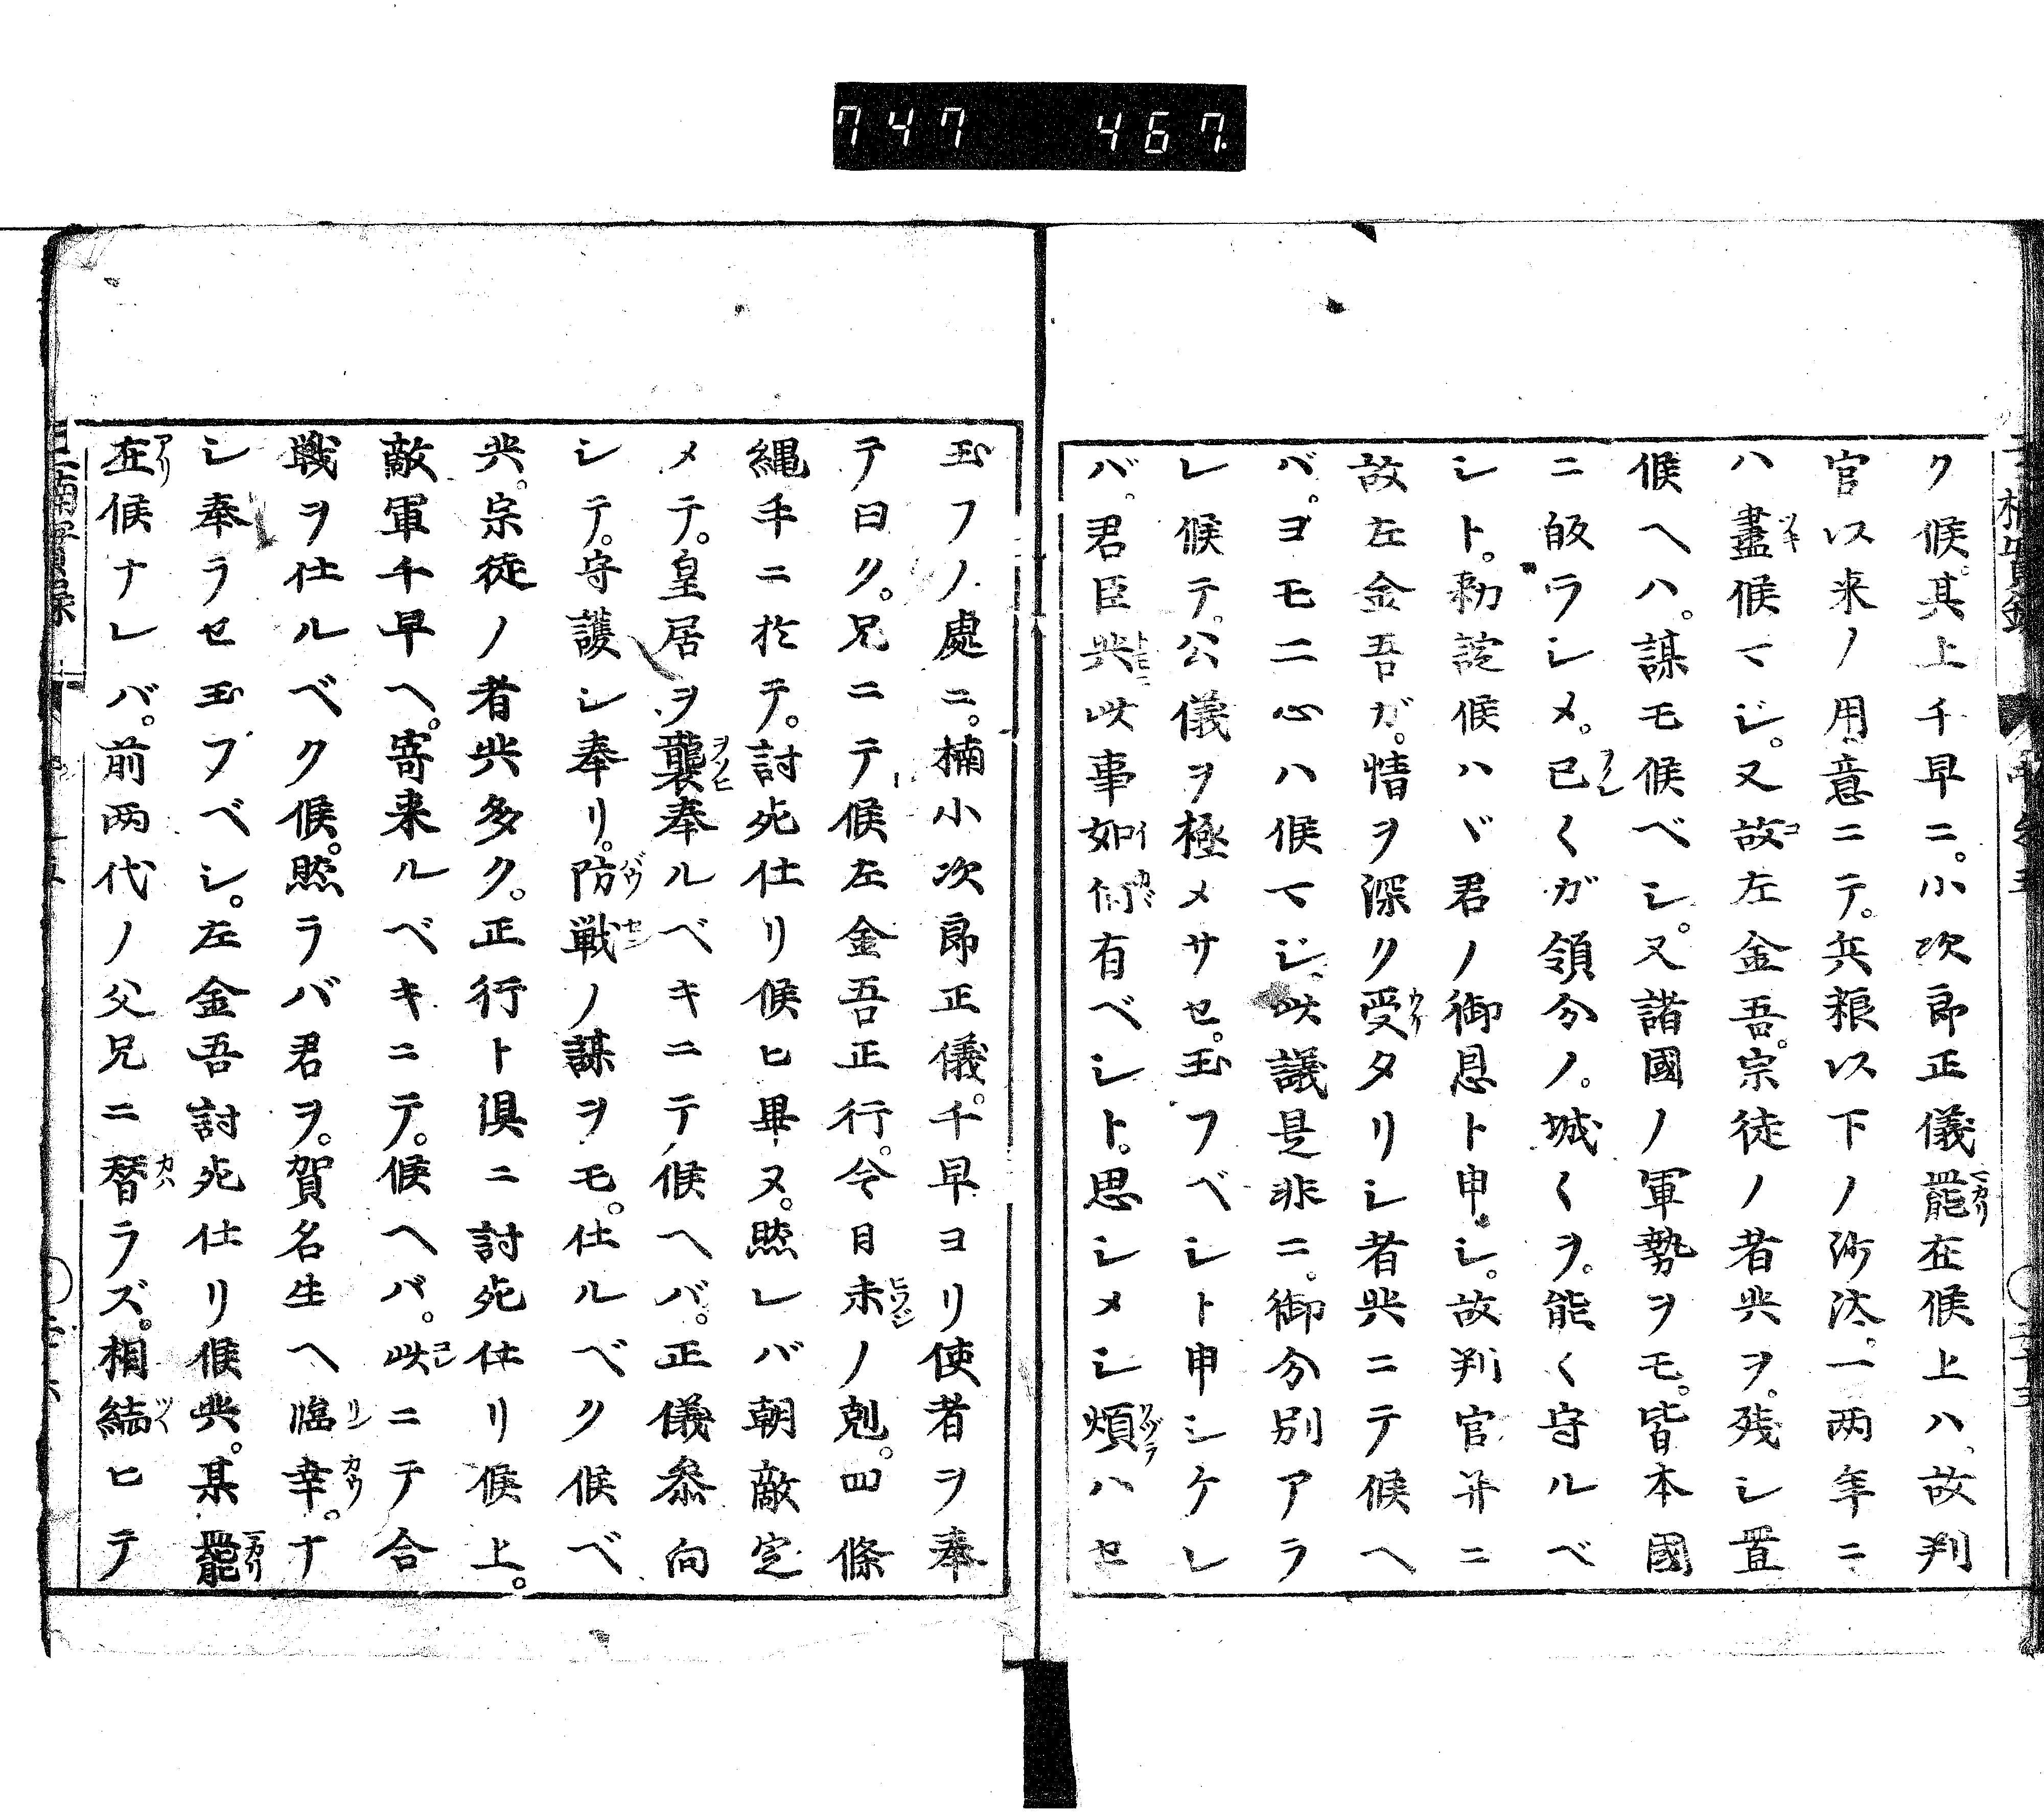 747 467
ク候。其上千早ニ。小次郎正儀罷在候上ハ、故判
官以来ノ用意ニテ。兵粮以下ノ沙汰。一両年ニ
ハ盡候マジ。又故左金吾。宗徒ノ者共ヲ。残シ置
候ヘハ。謀モ候ベシ。又諸國ノ軍勢ヲモ。皆本國
ニ皈ラシメ。己〱ガ領分ノ。城〱ヲ。能〱守ルベ
シト。勅諚候ハヾ君ノ御恩ト申シ。故判官并ニ
故左金吾ガ。情ヲ深ク受タリシ者共ニテ候ヘ
バ。ヨモ二心ハ候マジ。此議是非ニ。御分別アラ
レ候テ。公儀ヲ極メサセ。玉フベシト申シケレ
バ。君臣共此事如何有ベシト。思シメシ煩ハセ
玉フノ處ニ。楠小次郎正儀。千早ヨリ使者ヲ奉
テ曰ク。兄ニテ候左金吾正行。今日未ノ剋。四條
縄手ニ於テ。討死仕リ候ヒ畢ヌ。然レバ朝敵定
メテ。皇居ヲ襲奉ルベキニテ候ヘバ。正儀参向
シテ。守護シ奉リ。防戦ノ謀ヲモ。仕ルベク候ベ
共。宗徒ノ者共多ク。正行ト倶ニ討死仕リ候上。
敵軍千早ヘ。寄来ルベキニテ。候ヘバ。此ニテ合
戦ヲ仕ルベク候。然ラバ君ヲ。賀名生ヘ臨幸。ナ
シ奉ラセ玉フベシ。左金吾討死仕リ候共。某罷
在候ナレバ。前両代ノ父兄ニ替ラズ。相結ヒテ